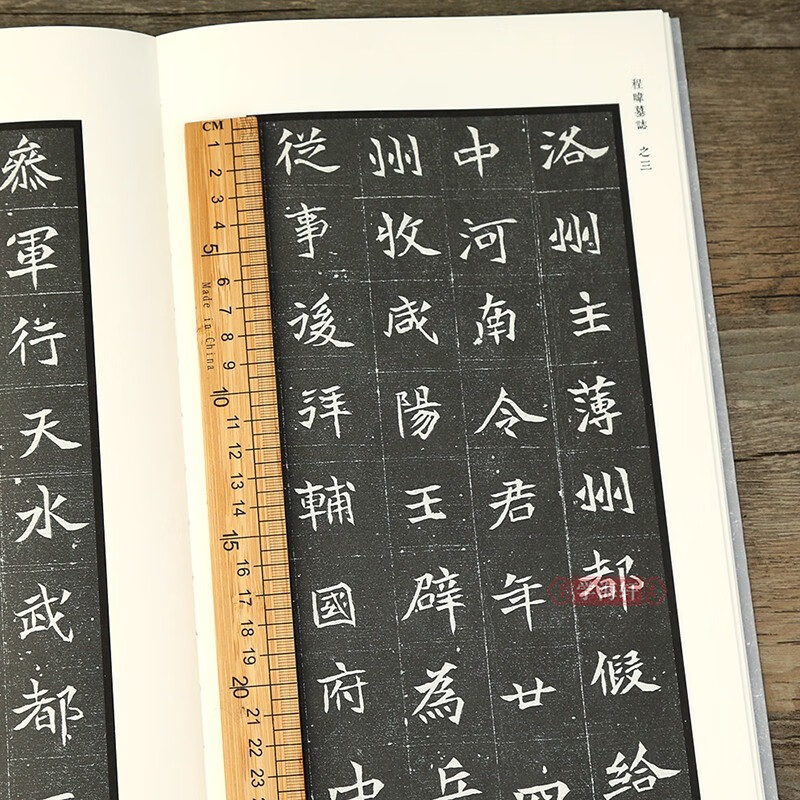 程暐墓誌 之三
洛州主薄州都假給
中河南令君年廿四
州收咸陽王辟為兵
從事後拜輔國府中
叅軍行天水武都
CM
1
2
3
4
5
6
7
8
9
10
11
12
13
14
15
16
17
18
19
20
21
22
23
Made in China